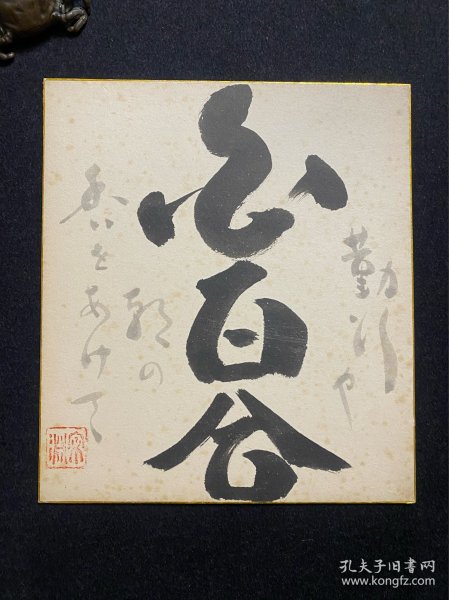 勤行や
百合
朝の
をあけて
孔夫子旧书网
www.kongfz.com